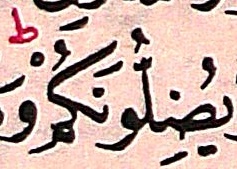 يُضِلُّونَكُمْؕ وَ